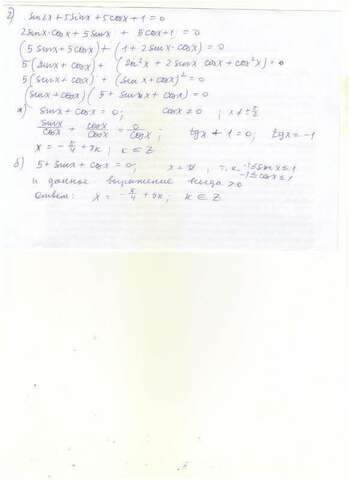 2) sin2x + 5sinx + 5cosx + 1 = 0
2sinx·cosx + 5sinx + 5cosx + 1 = 0
(5sinx + 5cosx) + (1 + 2sinx·cosx) = 0
5(sinx + cosx) + (sin²x + 2sinx cosx + cos²x) = 0
5(sinx + cosx) + (sinx + cosx)² = 0
(sinx + cosx)(5 + sinx + cosx) = 0
а) sinx + cosx = 0; cosx ≠ 0; x ≠ ± π/2
sinx/cosx + cosx/cosx = 0/cosx; tgx + 1 = 0; tgx = -1
x = -π/4 + πk; k ∈ Z
б) 5 + sinx + cosx = 0; т.к. -1 ≤ sinx ≤ 1
-1 ≤ cosx ≤ 1
и данное выражение всегда > 0
Ответ: x = -π/4 + πk; k ∈ Z